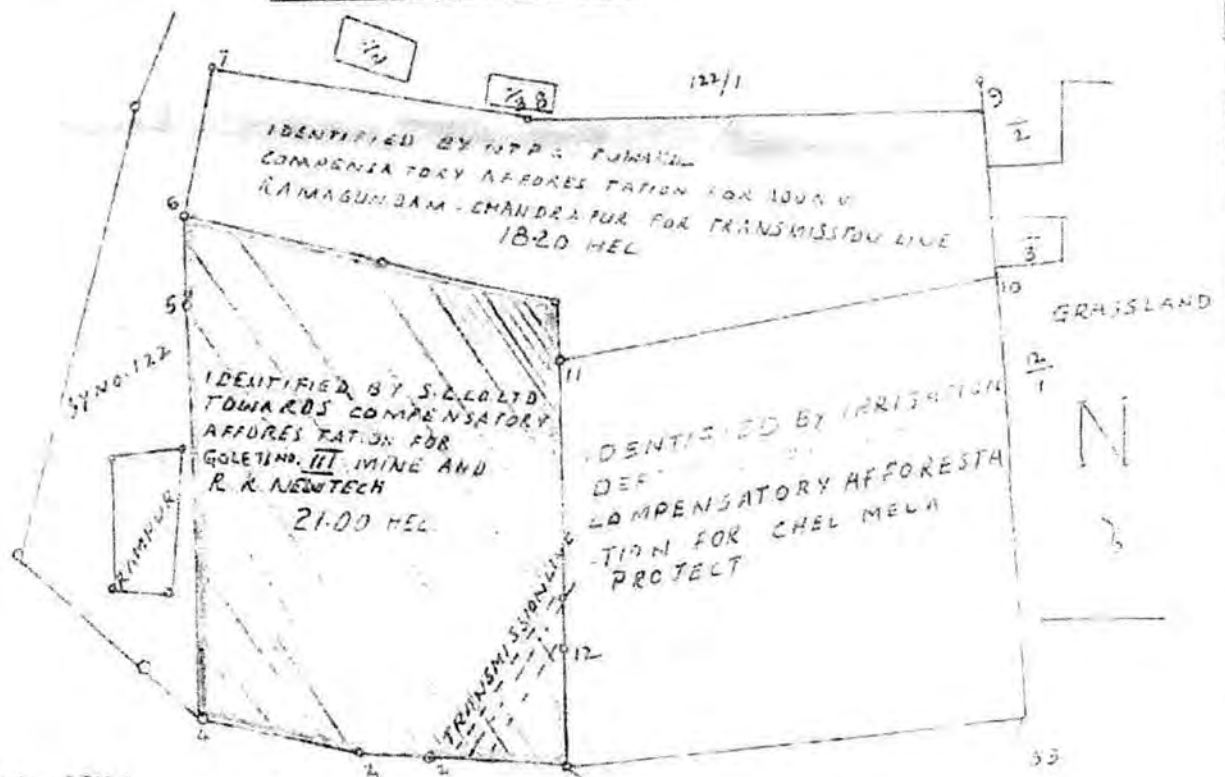 7
8
122/1
9
2
IDENTIFIED BY NTPC
COMPENSATORY AFFORESTATION FOR
RAMAGUNDAM - CHANDRAPUR FOR TRANSMISSION LINE
18.20 HEC
6
3
10
5
GRASSLAND
SY NO. 122
11
12
1
N
IDENTIFIED BY S.C.CO.LTD
TOWARDS COMPENSATORY
AFFORESTATION FOR
GOLETI NO. III MINE AND
R.K. NEWTECH
21.00 HEC
IDENTIFIED BY IRRIGATION
COMPENSATORY AFFORESTA
-TION FOR CHELMELA
PROJECT
RAMPUR
TRANSMISSION LINE
12
4
2
2
33